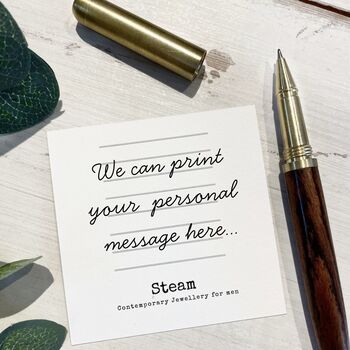 We can print
your personal
message here...
Steam
Contemporary Jewellery for men